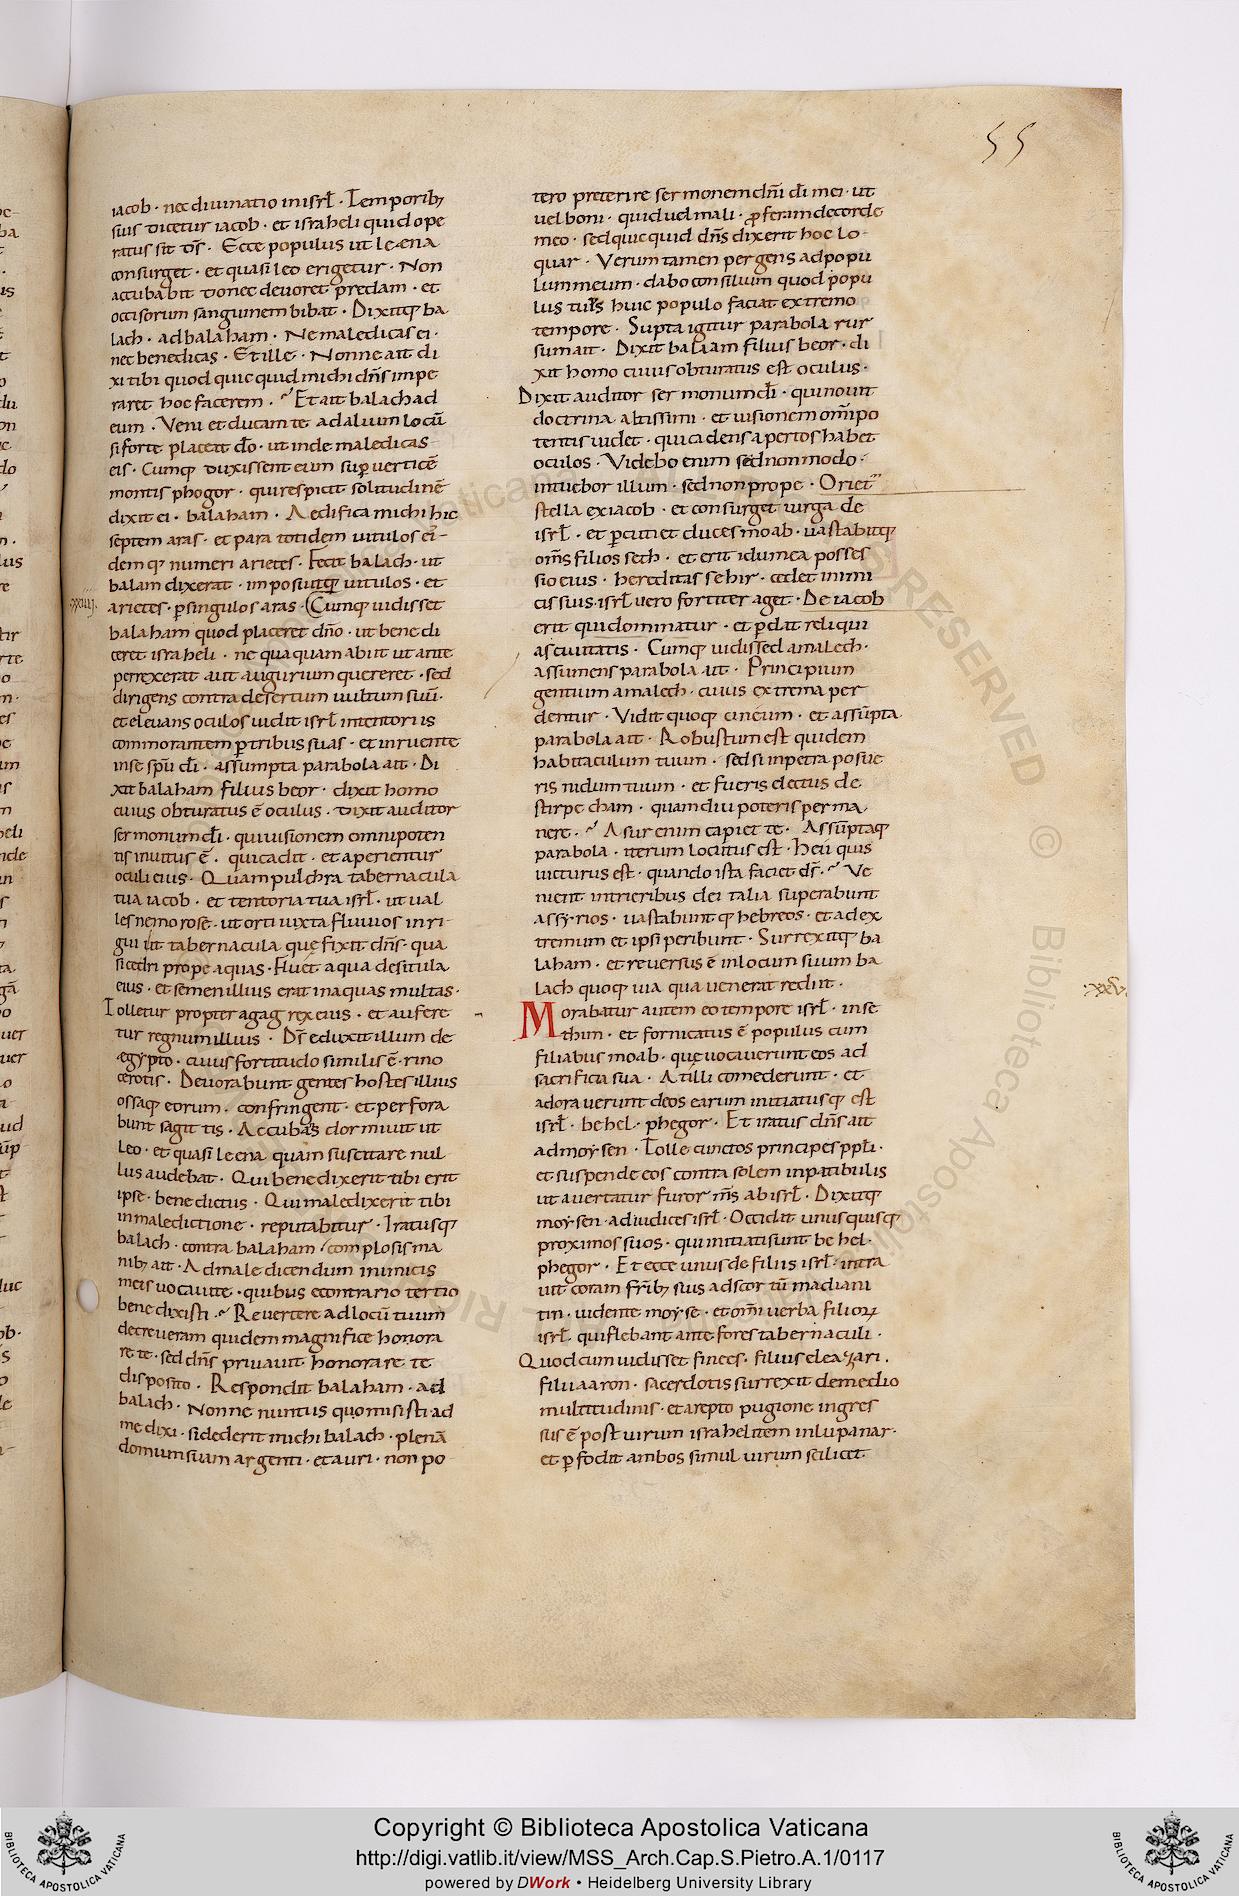 55
iacob · nec diuinatio in isrł · Temporibꝫ
suis dicetur iacob · et israheli quid ope
ratus sit d̄s · Ecce populus ut leęna
consurget · et quasi leo erigetur · Non
accubabit donec deuoret predam · et
occisorum sanguinem bibat · Dixitq; ba
lach · ad balaham · Ne maledicas ei ·
nec benedicas · Et ille · Nonne ait di
xi tibi quod quicquid michi dn̄s impe
raret hoc facerem · Et ait balach ad
eum · Veni et ducam te ad alium locū
si forte placeat d̄o · ut inde maledicas
eis · Cumq; duxisset eum suꝑ verticē
montis phogor · qui respicit solitudinē
dixit ei · balaham · Aedifica michi hic
septem aras · et para totidem uitulos ei
dem q; numeri arietes · Fecit balach · ut
balam dixerat · imposuitq; uitulos · et
xxiiij.
arietes · ꝑ singulos aras · Cumq; uidisset
balaham quod placeret dn̄o · ut bene di
ceret israheli · ne quaquam abiit ut ante
perrexerat aut augurium quereret · sed
dirigens contra desertum uultum suū ·
et eleuans oculos uidit isrł in tentoriis
commorantem ꝑ tribus suas · et inruente
in se sp̄u d̄i · assumpta parabola ait · Di
xit balaham filius beor · dixit homo
cuius obturatus ē oculus · dixit auditor
sermonum d̄i · qui uisionem omnipoten
tis intuitus ē · qui cadit · et aperientur
oculi eius · Quam pulchra tabernacula
tua iacob · et tentoria tua isrł · ut ual
les nemorosę · ut orti iuxta fluuios inri
gui ut tabernacula quę fixit dn̄s · qua
si cedri prope aquas · Fluet aqua de situla
eius · et semen illius erat in aquas multas ·
Tolletur propter agag rex eius · et aufere
tur regnum illius · D̄s eduxit illum de
ęgypto · cuius fortitudo similis ē · rino
cerotis · Deuorabunt gentes hostes illius
ossaq; eorum · confringent · et perfora
bunt sagittis · Accubans dormiuit ut
leo · et quasi leena quam suscitare nul
lus audebat · Qui benedixerit tibi erit
ipse · benedictus · Qui maledixerit tibi
in maledictione · reputabitur · Iratusq;
balach · contra balaham complosis ma
nibꝫ ait · Ad maledicendum inimicis
meis uocaui te · quibus econtrario tertio
benedixisti · Reuertere ad locū tuum
decreueram quidem magnifice honora
re te · sed dn̄s priuauit honorare te
disposito · Respondit balaham · ad
balach · Nonne nuntiis quo misisti ad
me dixi · si dederit michi balach · plenā
domum suam argenti · et auri · non po
tero preterire sermonem dn̄i d̄i mei · ut
uel boni · quid uel mali · ꝓferam de corde
meo · sed quicquid dn̄s dixerit hoc lo
quar · Verum tamen pergens ad popu
lum meum · dabo consilium quod popu
lus tuus huic populo faciat extremo
tempore · Supta igitur parabola rur
sum ait · Dixit balaam filius beor · di
xit homo cuius obturatus est oculus ·
Dixit auditor sermonum d̄i · qui nouit
doctrina altissimi · et uisionem om̄ipo
tentis uidet · qui cadens apertos habet
oculos · Videbo enim sed non modo ·
intuebor illum · sed non prope · Oriet̄
stella ex iacob · et consurget uirga de
isrł · et ꝑcutiet duces moab · uastabitq;
om̄s filios seth · et erit idumea posses
sio eius · hereditas sehir · cedet inimi
cis suis · isrł uero fortiter aget · De iacob
erit qui dominatur · et ꝑdat reliqui
as ciuitatis · Cumq; uidissed amalech ·
assumens parabola ait · Principium
gentium amalech · cuius extrema per
dentur · Vidit quoq; cineum · et assūpta
parabola ait · Robustum est quidem
habitaculum tuum · sed si in petra posue
ris nidum tuum · et fueris electus de
stirpe cham · quamdiu poteris perma
nere · Asur enim capiet te · Assūptaq;
parabola · iterum locutus est · Heu quis
uicturus est · quando ista faciet d̄s · Ve
nient in trieribus dei talia superabunt
assyrios · uastabunt q; hebreos · et ad ex
tremum et ipsi peribunt · Surrexitq; ba
laham · et reuersus ē in locum suum ba
lach quoq; uia qua uenerat rediit ·
xxv
Morabatur autem eo tempore isrł · in se
thim · et fornicatus ē populus cum
filiabus moab · quę uocauerunt eos ad
sacrificia sua · At illi comederunt · et
adorauerunt deos earum initiatusq; est
isrł · behel · phegor · Et iratus dn̄s ait
ad moysen · Tolle cunctos principes ppłi ·
et suspende eos contra solem in patibulis
ut auertatur furor m̄s ab isrł · Dixitq;
moysen · ad iudices isrł · Occidat unus quisq;
proximos suos · qui initiati sunt behel ·
phegor · Et ecce unus de filiis isrł · intra
uit coram fr̄ibꝫ suis ad scortū madiani
tin · uidente moyse · et om̄i uerba filioꝝ
isrł · qui flebant ante fores tabernaculi ·
Quod cum uidisset finees · filius eleazari ·
filii aaron · sacerdotis surrexit de medio
multitudinis · et arepto pugione ingres
sus ē post uirum israhelitem in lupanar ·
et ꝑfodit ambos simul uirum scilicet
Copyright © Biblioteca Apostolica Vaticana
http://digi.vatlib.it/view/MSS_Arch.Cap.S.Pietro.A.1/0117
powered by DWork • Heidelberg University Library